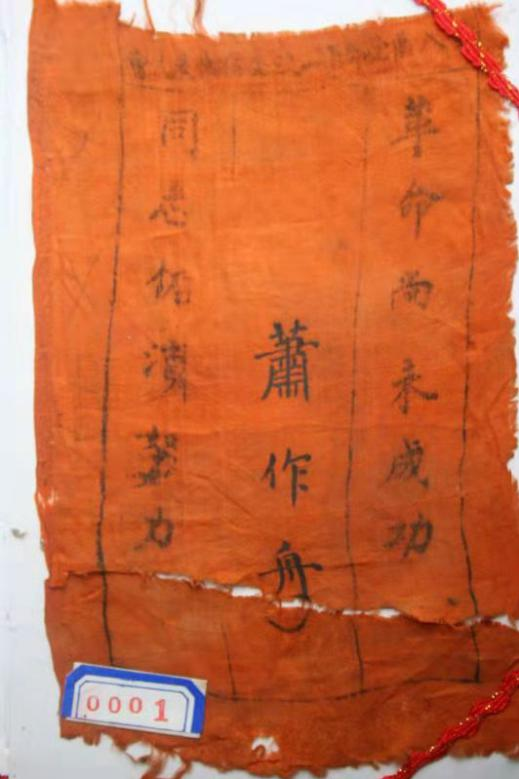 革命尚未成功
蕭作舟
同志仍須努力
0001